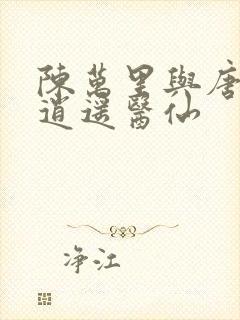 陳萬里與唐
逍遥醫仙
净江